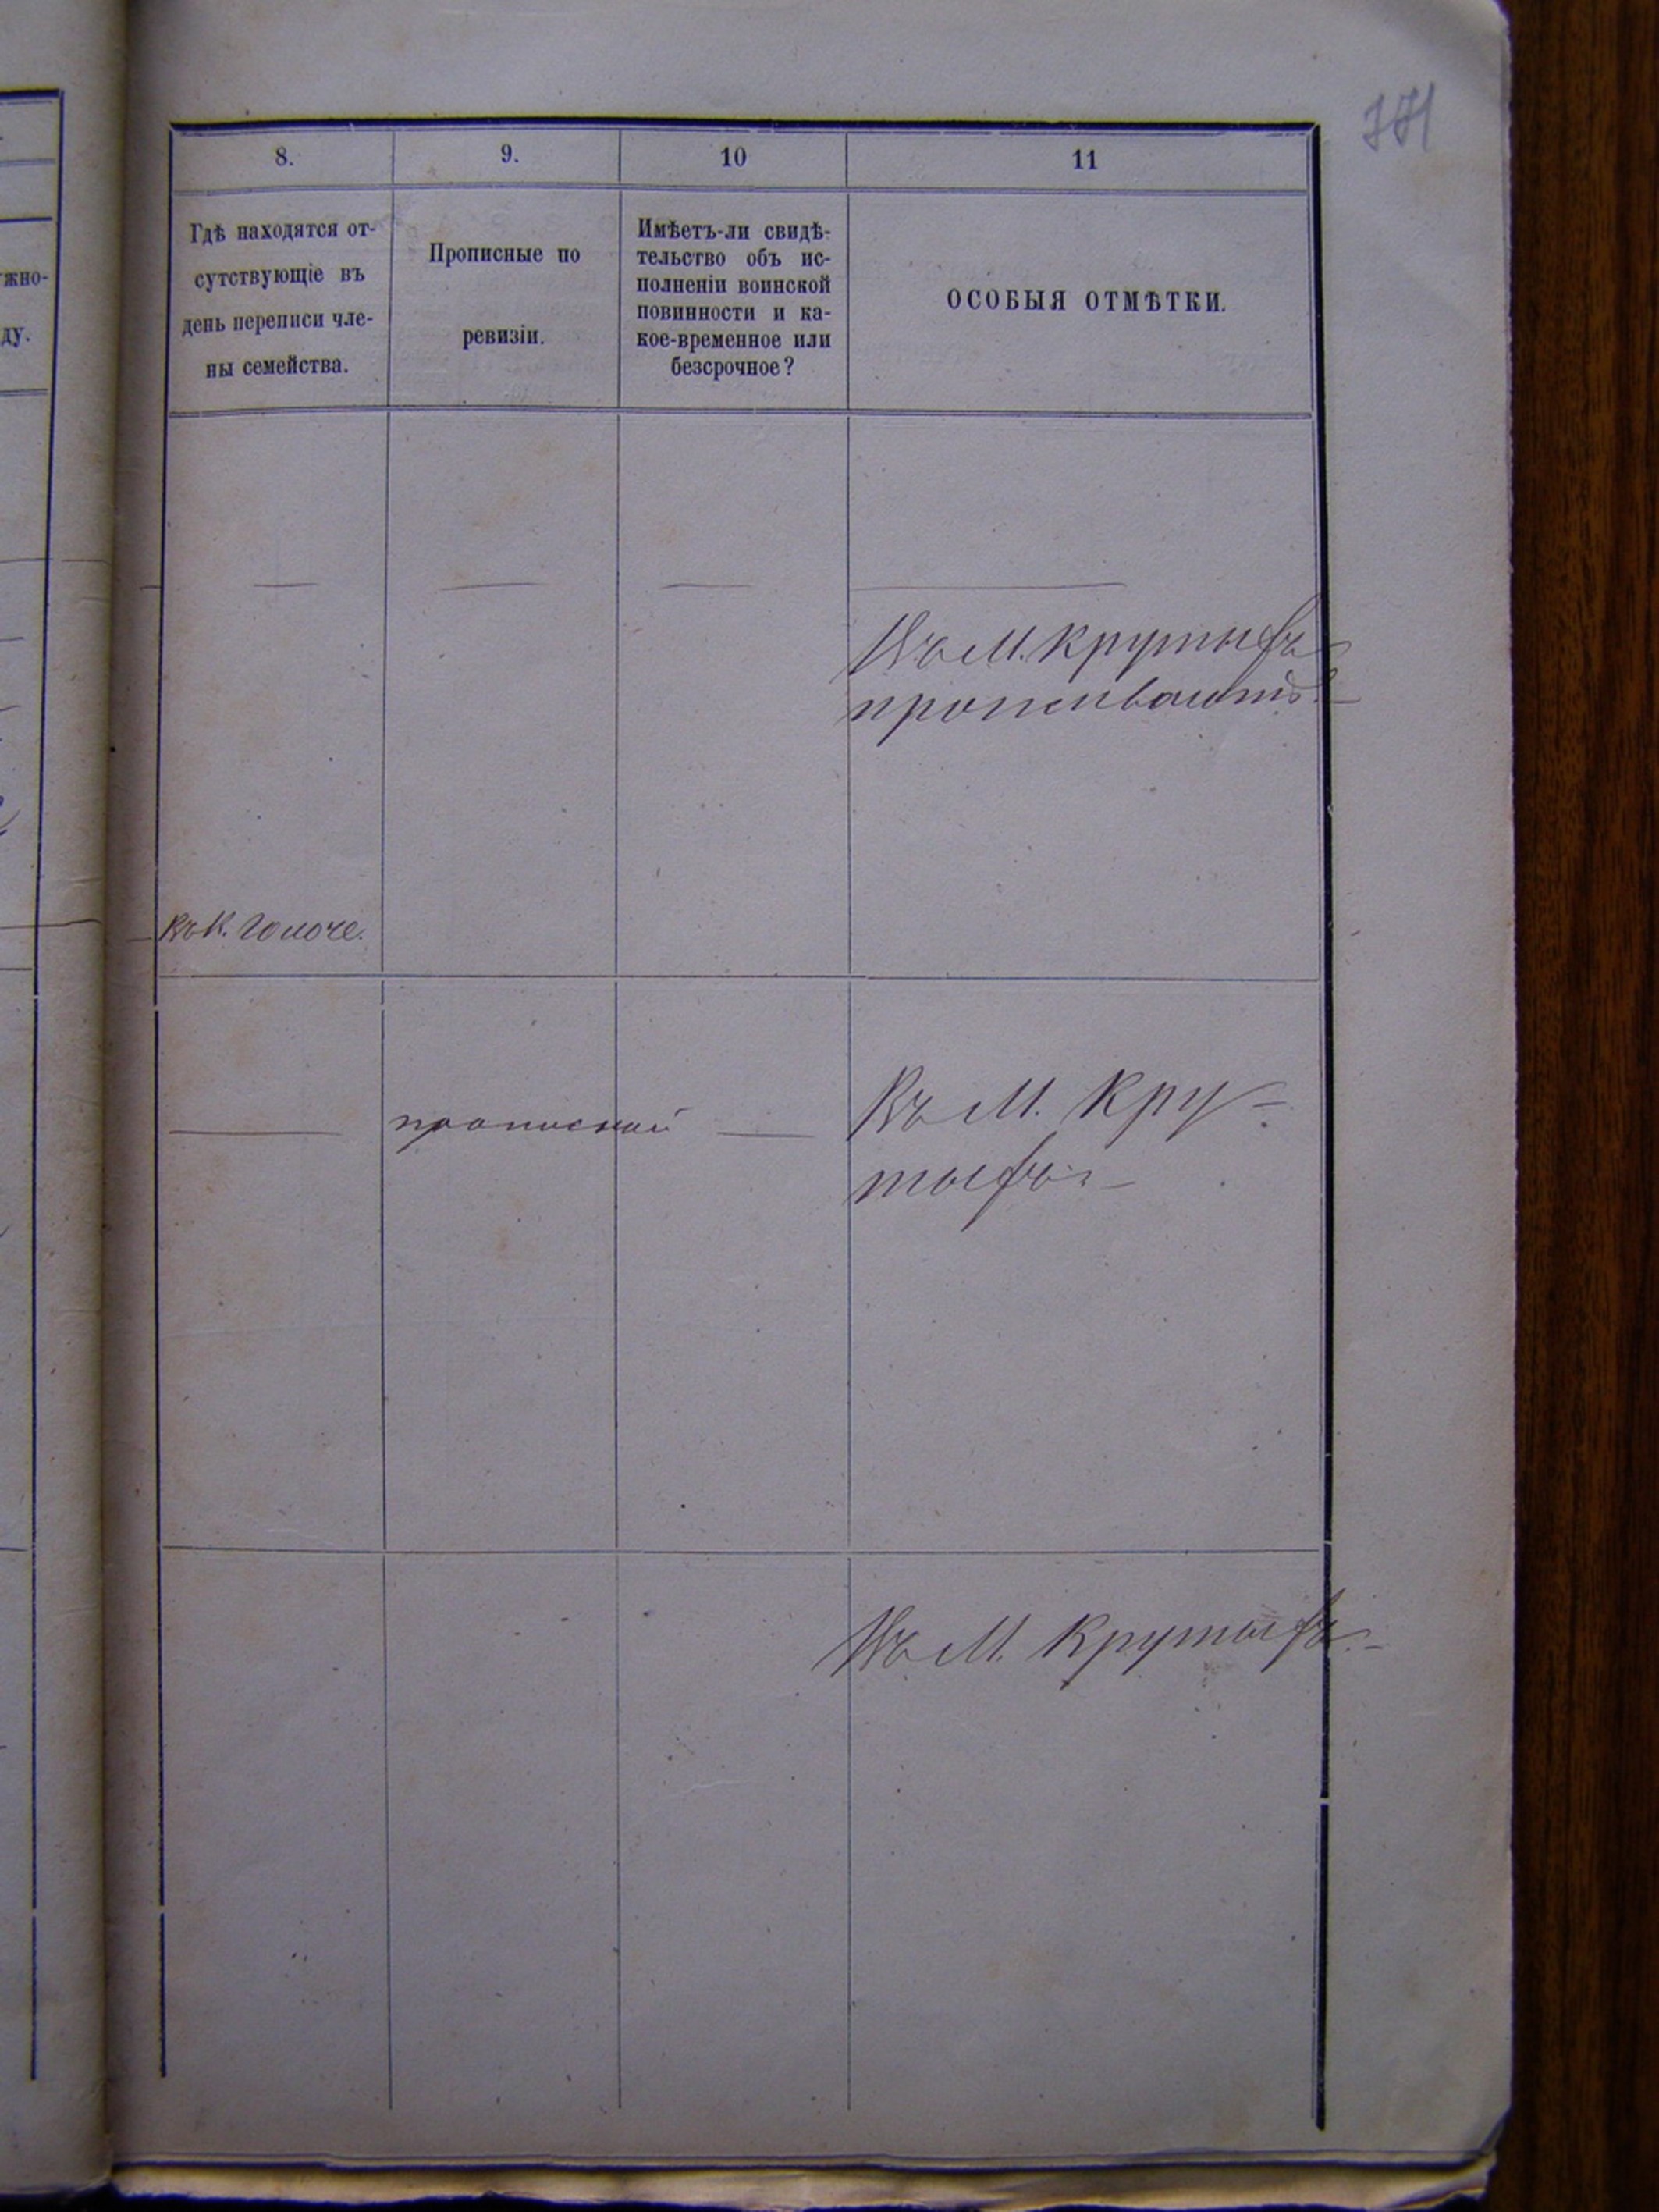 771
8.
9.
10
11
Гдѣ находятся от-
сутствующіе въ
день переписи чле-
ны семейства.
Прописные по
ревизіи.
Имѣетъ-ли свидѣ-
тельство объ ис-
полненіи воинской
повинности и ка-
кое-временное или
безсрочное?
ОСОБЫЯ ОТМѢТКИ.
жно-
ду.
Въ М. Крутыхъ
проживаютъ
Въ К.
прописной
Въ М. Кру-
тыхъ
Въ М. Крутыхъ